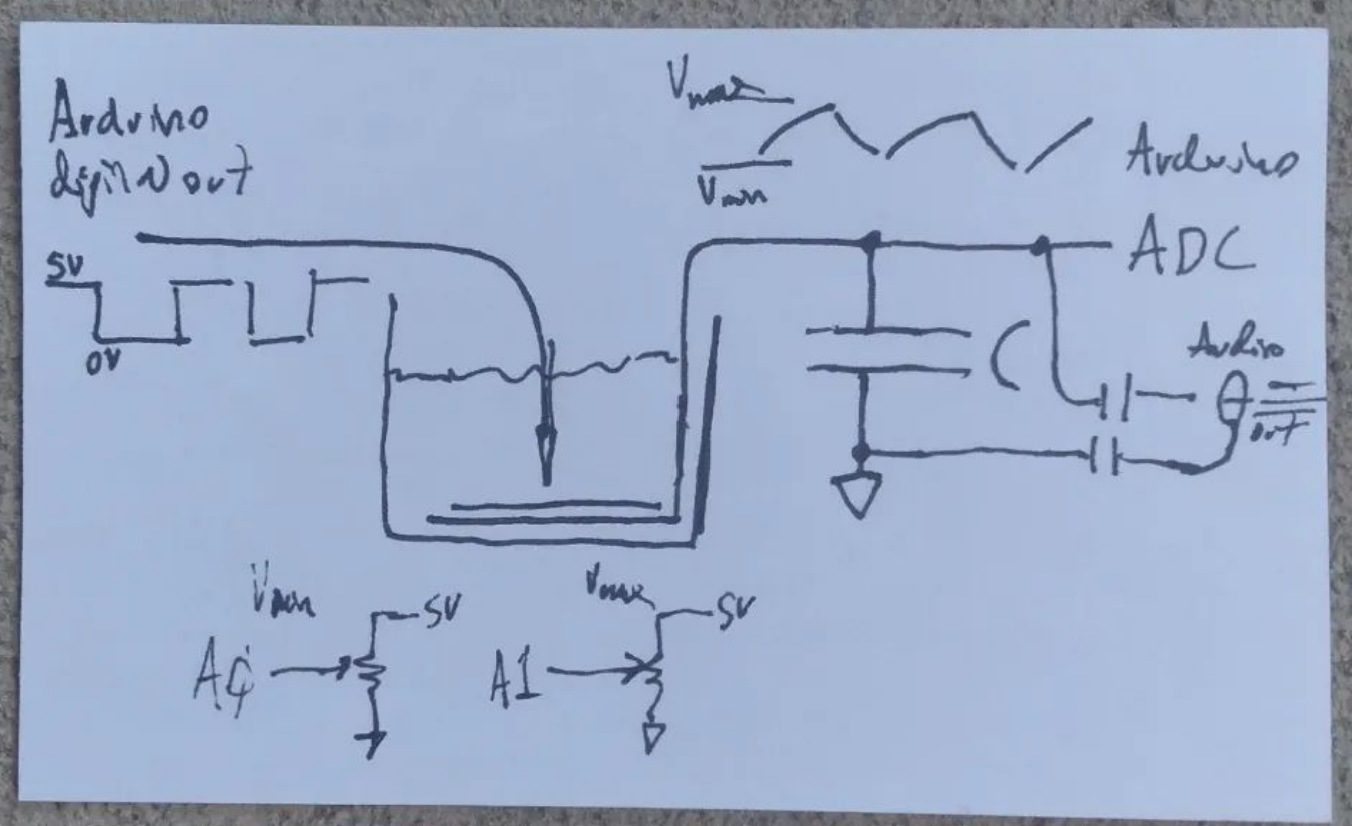 Arduino
digital out
5V
0V
Vmax
Vmin
Arduino
ADC
C
Audio
out
Vmin
5V
A0
Vmax
5V
A1